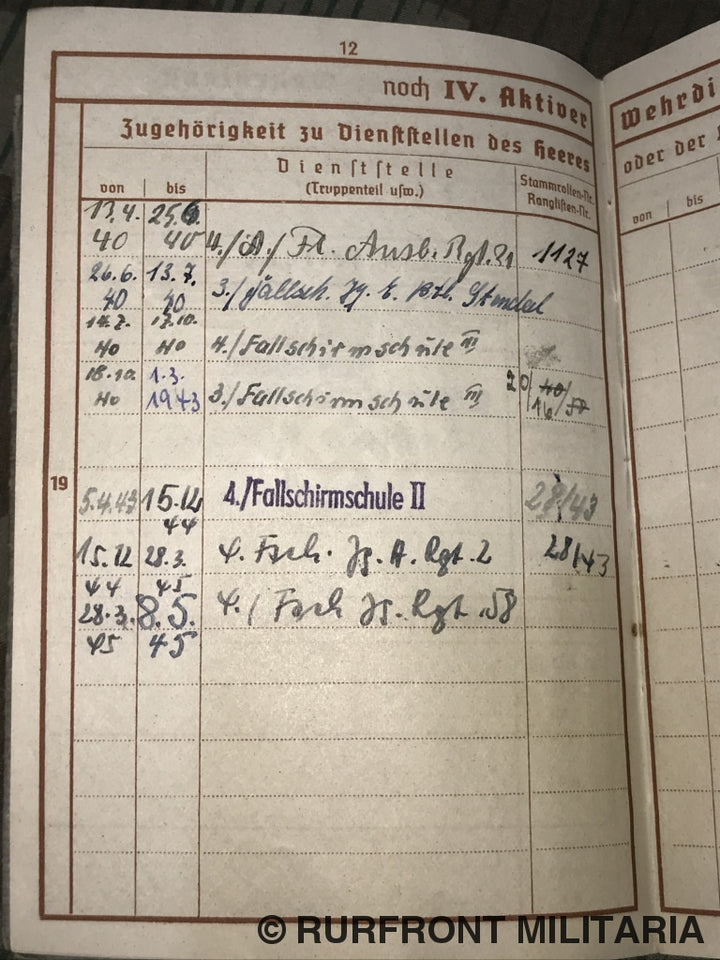 12
noch IV. Aktiver
Zugehörigkeit zu Dienststellen des Heeres
von bis Dienststelle (Truppenteil usw.) Stammrollen-Nr. Ranglisten-Nr.
17.4. 40 25.6. 40 4./A./Fl. Ausb. Rgt. 21 1127
26.6. 40 13.7. 40 3./Fallsch. Jg. E. Btl. Stendal
14.7. 40 17.10. 40 4./Fallschirmschule III
18.10. 40 1.3. 1943 3./Fallschirmschule III 20/ 40/ 16/57
19
5.4.43 15.12 44 4./Fallschirmschule II 28/43
15.12 44 28.3. 45 4. Fsch. Jg. A. Rgt. 2 28/43
28.3. 45 8.5. 45 4./ Fsch Jg. Rgt. 58
Wehrdi
oder der
von bis
© RURFRONT MILITARIA